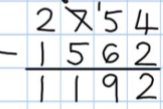 2 7 ¹5 4
− 1 5 6 2
1 1 9 2